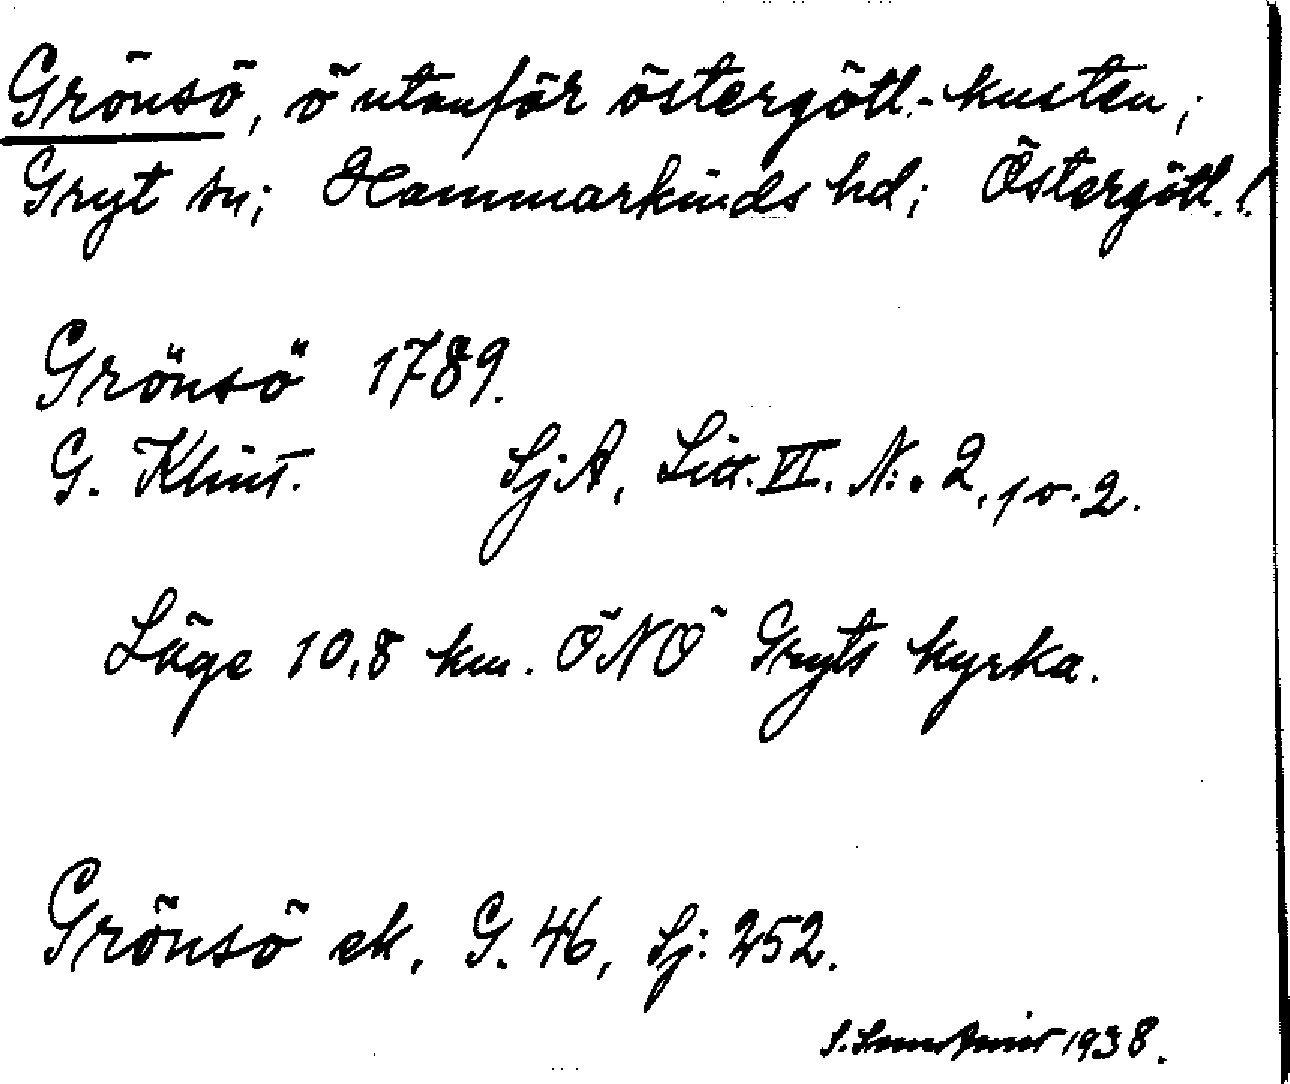 Grönsö, ö utanför östergötl.-kusten;
Gryt sn; Hammarkinds hd; Östergötl. l.
Grönsö 1789.
G. Klint. SjA, Litt. VI. N:. 2, 1 o. 2.
Läge 10,8 km. ÖNÖ Gryts kyrka.
Grönsö ek. G. 46, Sj: 252.
S. 1938.